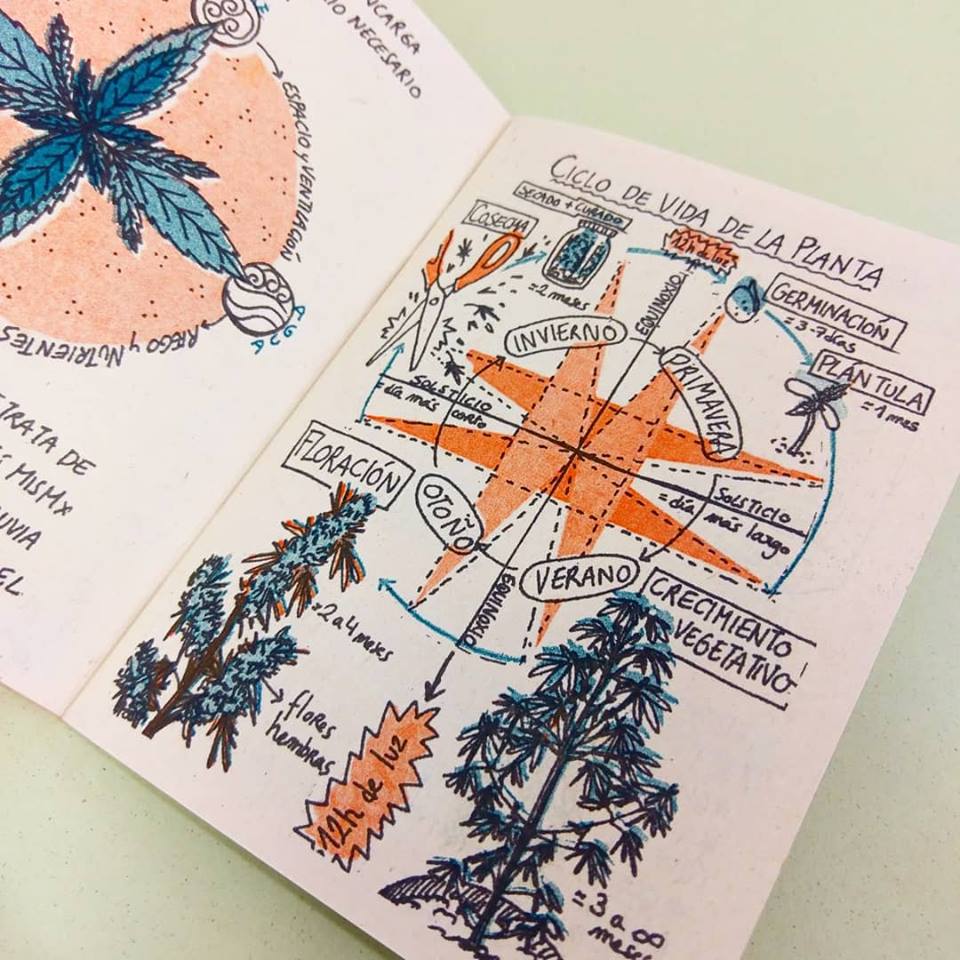 NCARGA
RIO NECESARIO
ESPACIO y VENTILACIÓN
AGUA
RIEGO y NUTRIENTES
TRATA DE
S MISMX
LUVIA
EL
CICLO DE VIDA DE LA PLANTA
SECADO + CURADO
= 2 meses
COSECHA
12h de luz
GERMINACIÓN
= 3-7 días
PLÁNTULA
= 1 mes
EQUINOXIO
INVIERNO
PRIMAVERA
SOLSTICIO
= día más corto
SOLSTICIO
= día más largo
OTOÑO
VERANO
EQUINOXIO
FLORACIÓN
= 2 a 4 meses
flores
hembras
12h de luz
CRECIMIENTO
VEGETATIVO
= 3 a ∞
meses